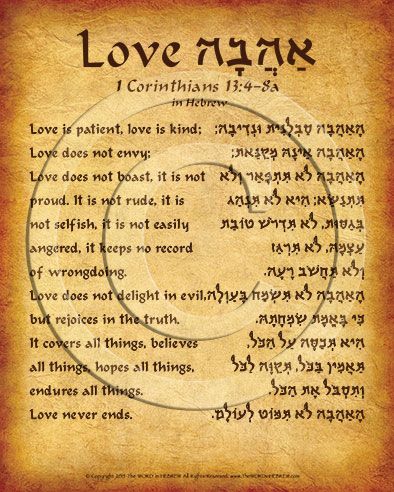 Love אַהֲבָה
1 Corinthians 13:4-8a
in Hebrew
Love is patient, love is kind; הָאַהֲבָה סַבְלָנִית וּנְדִיבָה;
Love does not envy; הָאַהֲבָה אֵינָהּ מְקַנֵּאת;
Love does not boast, it is not הָאַהֲבָה לֹא תִּתְפָּאֵר וְלֹא
proud. It is not rude, it is תִּתְנַשֵּׂא; הִיא לֹא תִּנְהַג
not selfish, it is not easily בְּגַסּוּת, לֹא תִּדְרֹשׁ טוֹבַת
angered, it keeps no record עַצְמָהּ, לֹא תִּרְגַּז
of wrongdoing. וְלֹא תַּחְשֹׁב רָעָה.
Love does not delight in evil, הָאַהֲבָה לֹא תִּשְׂמַח בְּעַוְלָה,
but rejoices in the truth. כִּי בָּאֱמֶת שִׂמְחָתָהּ.
It covers all things, believes הִיא תְּכַסֶּה עַל הַכֹּל,
all things, hopes all things, תַּאֲמִין בַּכֹּל, תְּקַוֶּה לַכֹּל,
endures all things. וְתִסְבֹּל אֶת הַכֹּל.
Love never ends. הָאַהֲבָה לֹא תִּמּוֹט לְעוֹלָם.
© Copyright 2013 The WORD in HEBREW All Rights Reserved. www.TheWORDinHEBREW.com